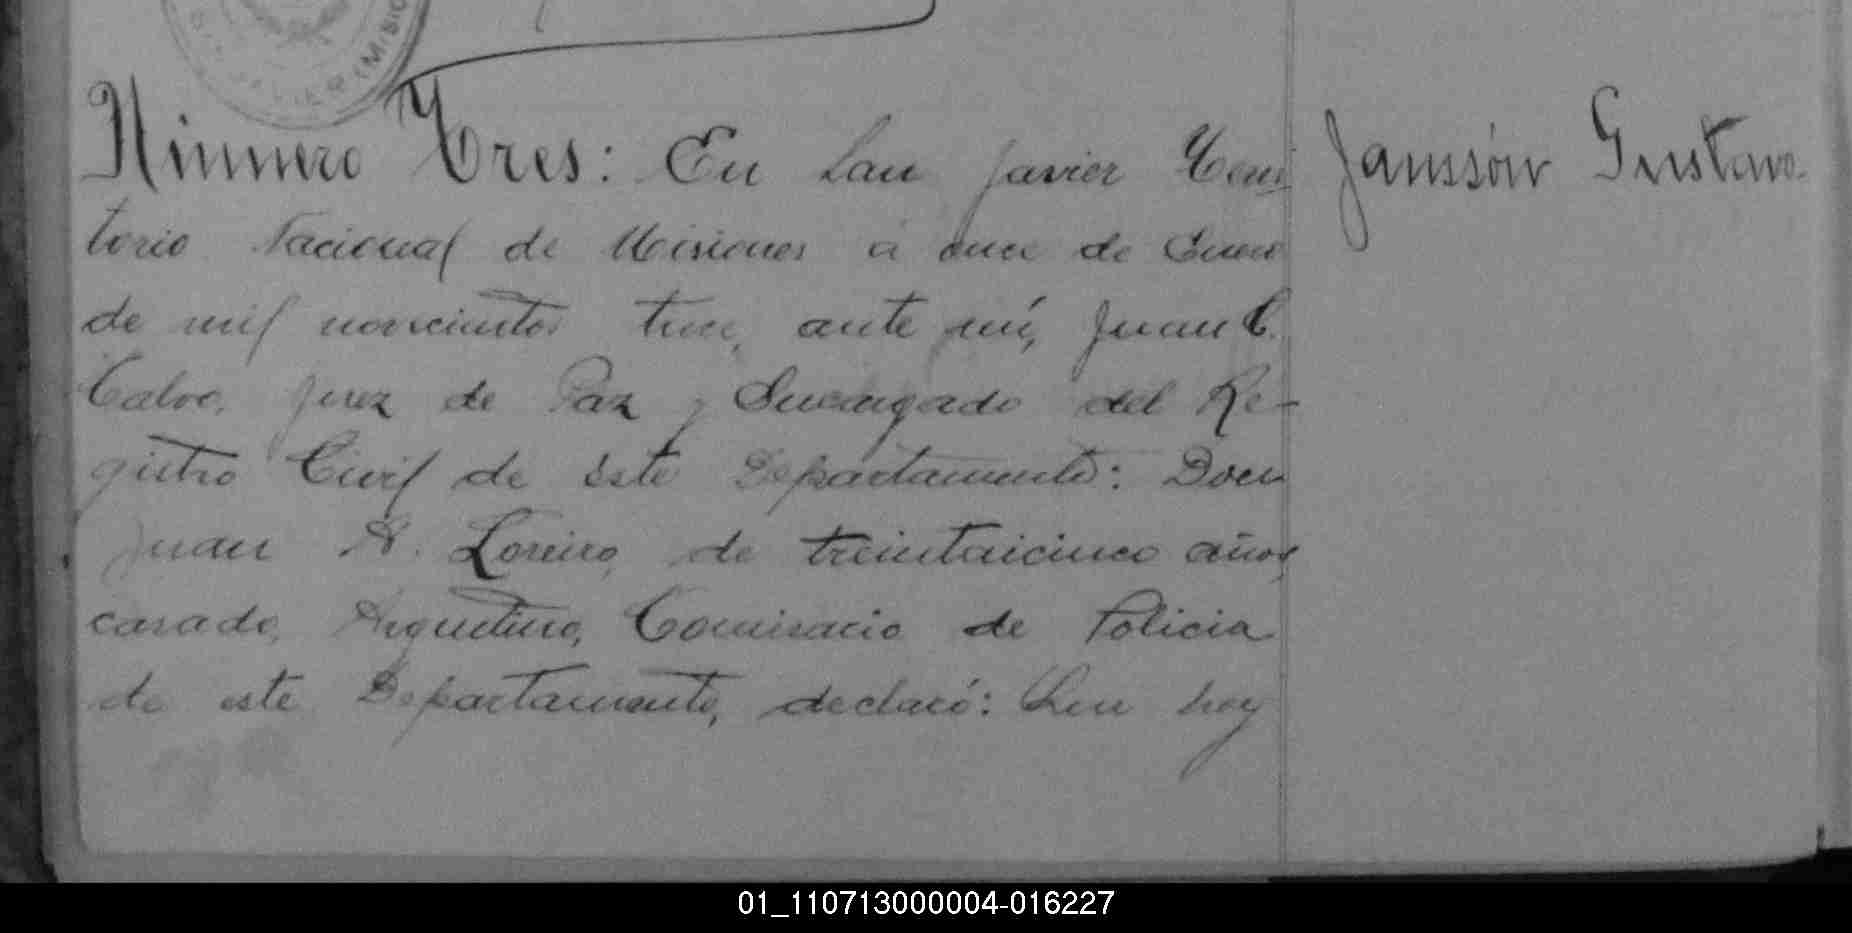 Número Tres: En San Javier Terri
torio Nacional de Misiones á once de Enero
de mil novecientos trece, ante mí, Juan C.
Calvo, Juez de Paz y Encargado del Re-
gistro Civil de este Departamento: Don
Juan A. Loreiro, de treintaicinco años,
casado, Argentino, Comisario de Policia
de este Departamento, declaró: Que hoy
Janssón Gustavo.
01_110713000004-016227